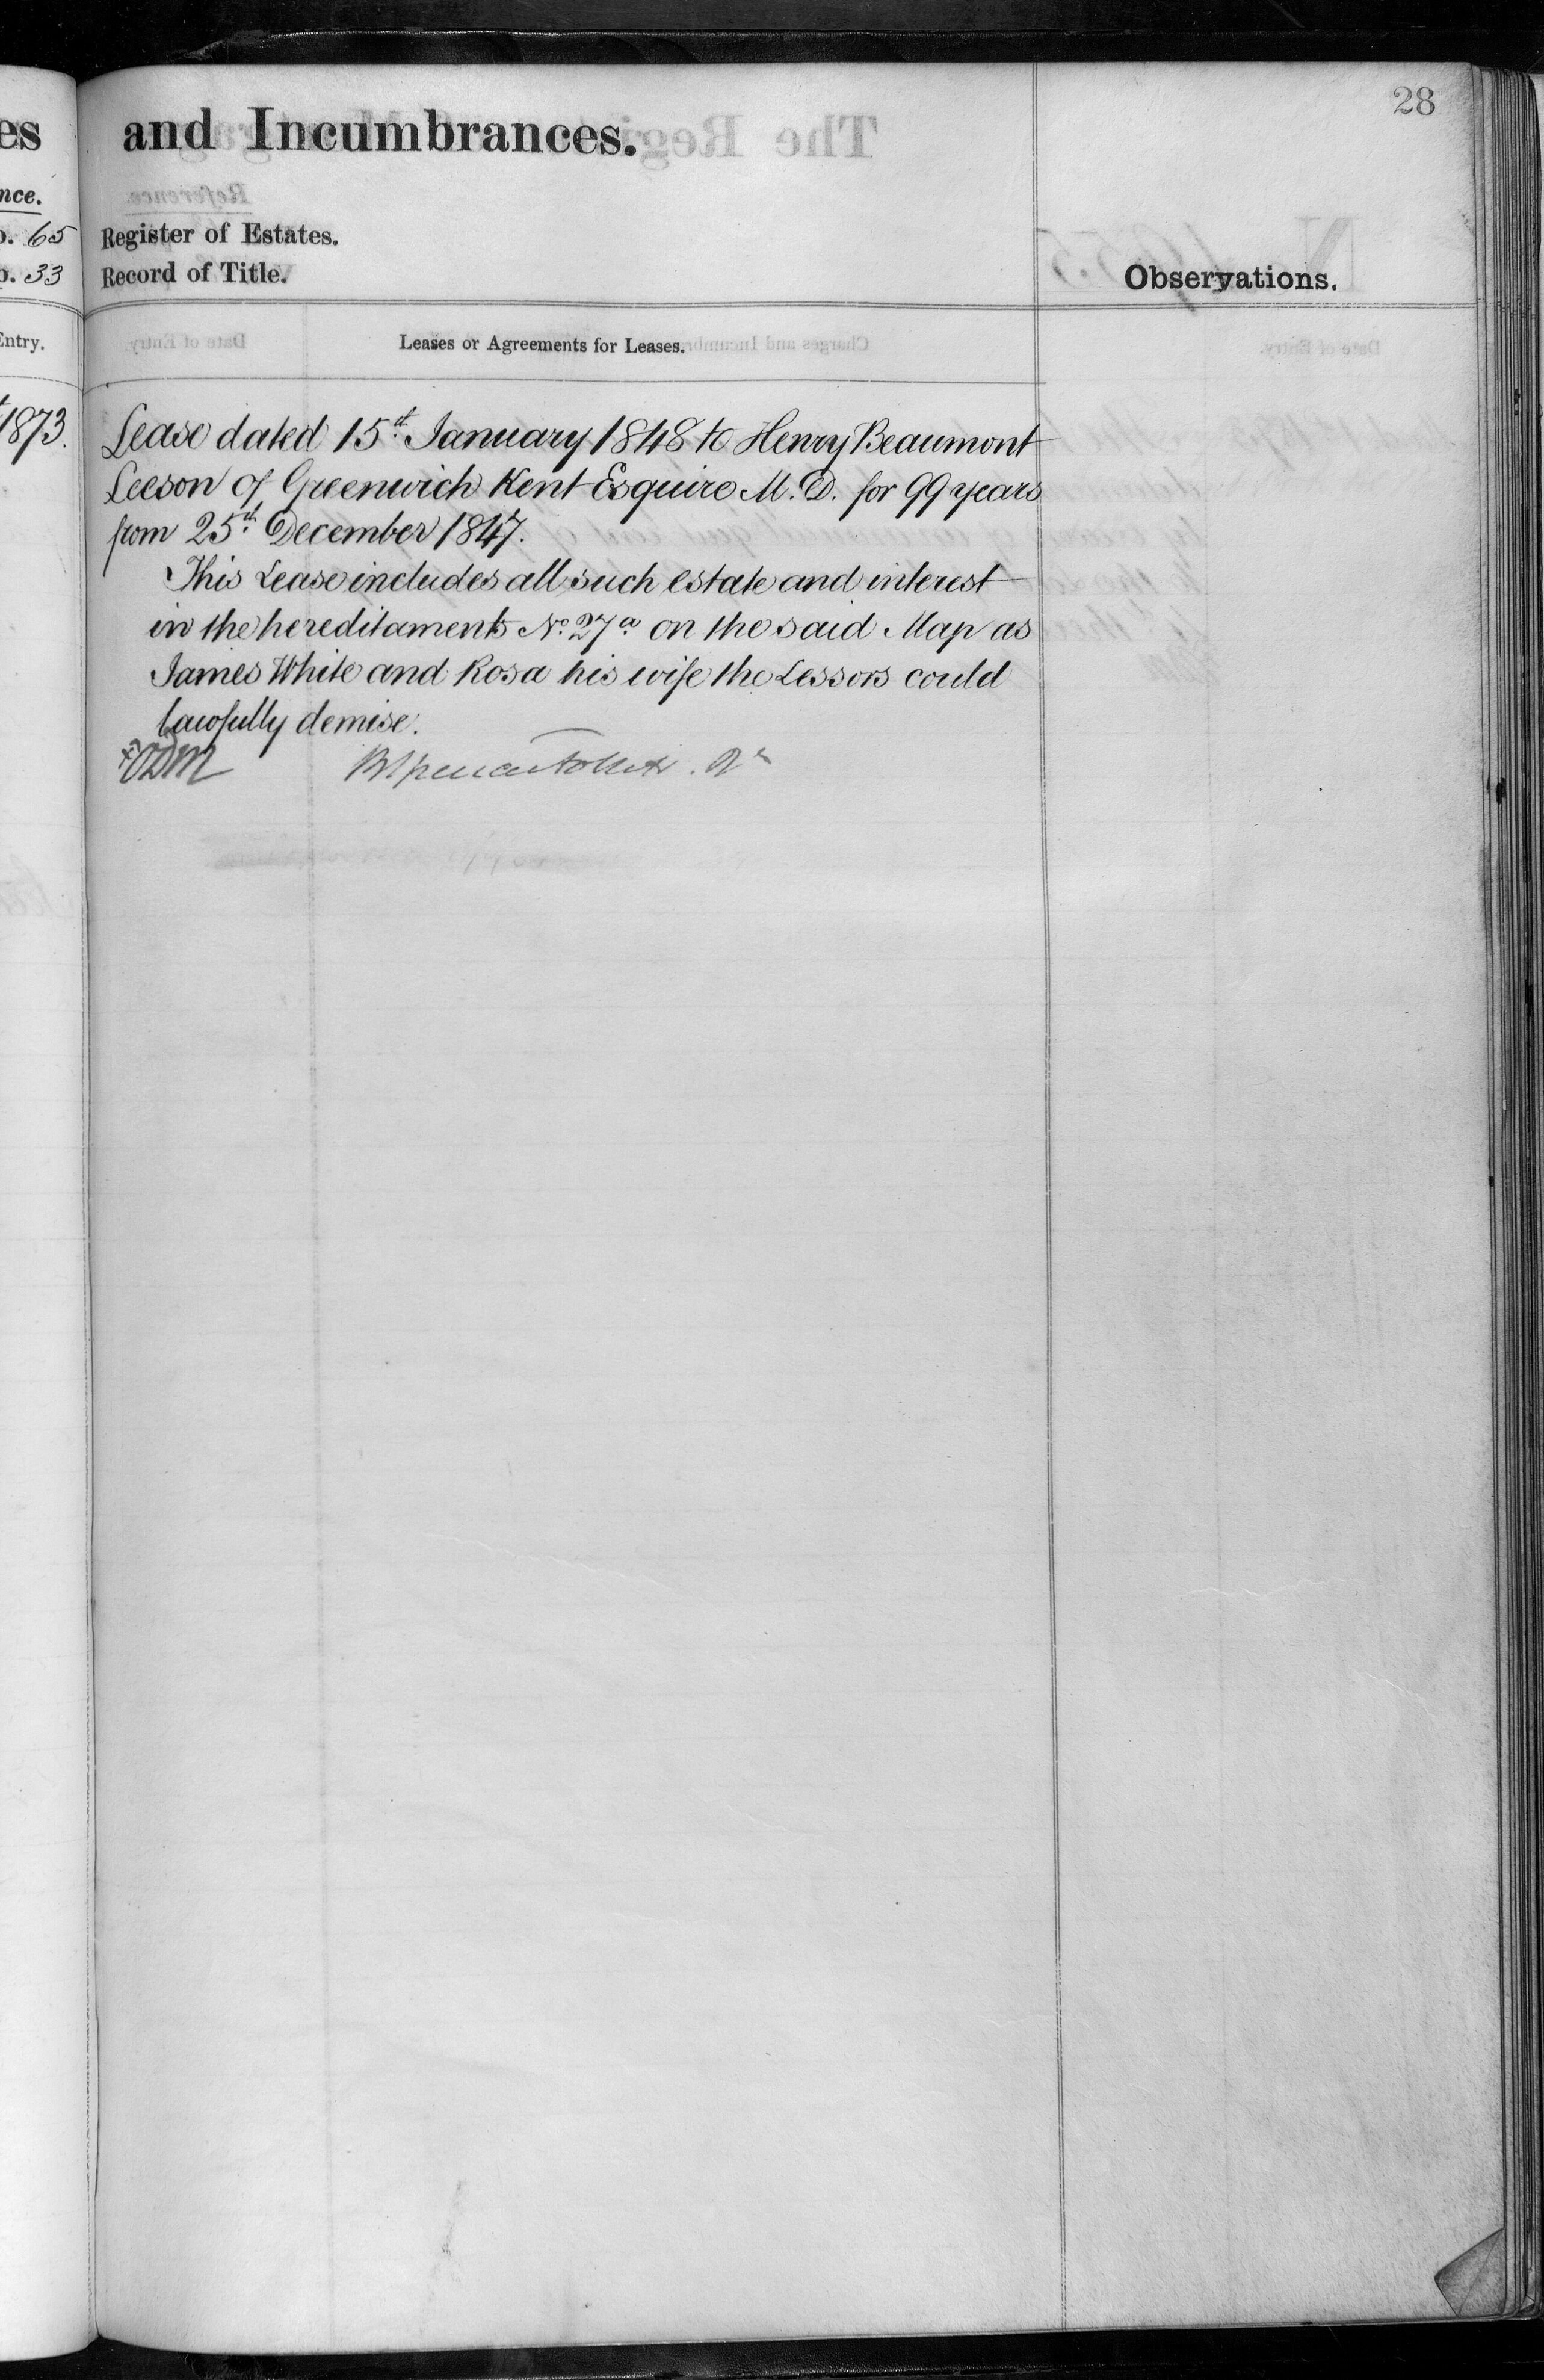 28
es and Incumbrances.
nce.
p. 65 Register of Estates.
p. 33 Record of Title.
Observations.
Entry. Leases or Agreements for Leases.
1873. Lease dated 15th January 1848 to Henry Beaumont
Leeson of Greenwich Kent Esquire M.D. for 99 years
from 25th December 1847.
This Lease includes all such estate and interest
in the hereditaments No. 27a on the said Map as
James White and Rosa his wife the Lessors could
lawfully demise.